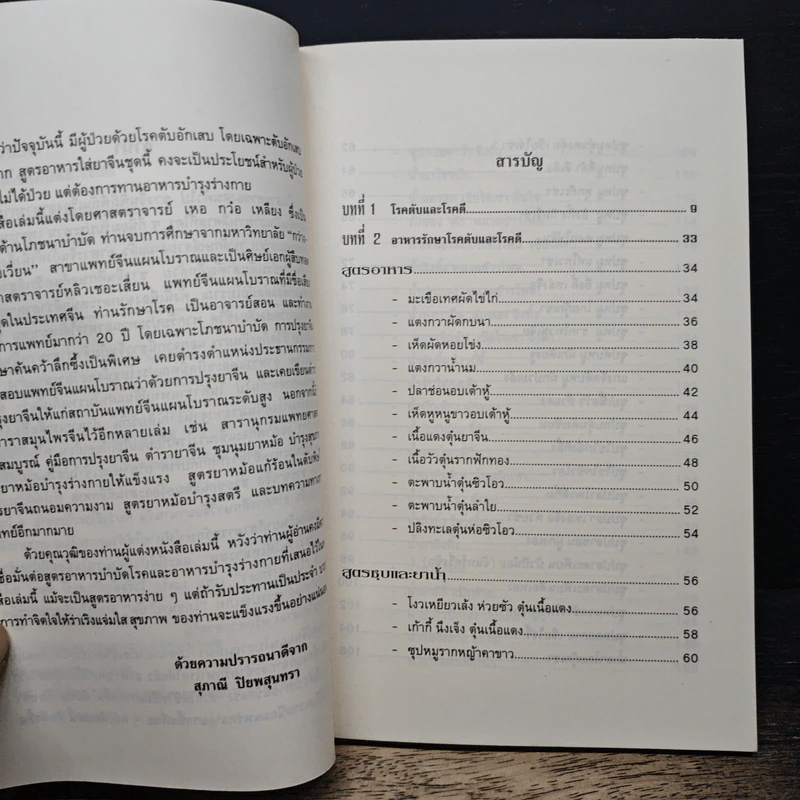 ว่าปัจจุบันนี้ มีผู้ป่วยด้วยโรคตับอักเสบ โดยเฉพาะตับอักเสบ
าก สูตรอาหารใส่ยาจีนชุดนี้ คงจะเป็นประโยชน์สำหรับผู้ป่วย
ไม่ได้ป่วย แต่ต้องการทานอาหารบำรุงร่างกาย
สือเล่มนี้แต่งโดยศาสตราจารย์ เหอ กว๋อ เหลียง ซึ่งเป็น
ด้านโภชนาบำบัด ท่านจบการศึกษาจากมหาวิทยาลัย "กว่าง-
เวี่ยน" สาขาแพทย์จีนแผนโบราณและเป็นศิษย์เอกผู้สืบทอด
าสตราจารย์หลิวเชอะเสี่ยน แพทย์จีนแผนโบราณที่มีชื่อเสียง
ุดในประเทศจีน ท่านรักษาโรค เป็นอาจารย์สอน และทำงาน
การแพทย์มากว่า 20 ปี โดยเฉพาะโภชนาบำบัด การปรุงยาจีน
ษาค้นคว้าลึกซึ้งเป็นพิเศษ เคยดำรงตำแหน่งประธานกรรมการ
สอบแพทย์จีนแผนโบราณว่าด้วยการปรุงยาจีน และเคยเขียนตำรา
รุงยาจีนให้แก่สถาบันแพทย์จีนแผนโบราณระดับสูง นอกจากนี้
าราสมุนไพรจีนไว้อีกหลายเล่ม เช่น สารานุกรมแพทยศาสตร์
สมบูรณ์ คู่มือการปรุงยาจีน ตำรายาจีน ชุมนุมยาหม้อ บำรุงสุขภาพ
ยาหม้อบำรุงร่างกายให้แข็งแรง สูตรยาหม้อแก้ร้อนในดับพิษ
รยาจีนถนอมความงาม สูตรยาหม้อบำรุงสตรี และบทความทาง
พทย์อีกมากมาย
ด้วยคุณวุฒิของท่านผู้แต่งหนังสือเล่มนี้ หวังว่าท่านผู้อ่านคงมีความ
ชื่อมั่นต่อสูตรอาหารบำบัดโรคและอาหารบำรุงร่างกายที่เสนอไว้ใน
สือเล่มนี้ แม้จะเป็นสูตรอาหารง่าย ๆ แต่ถ้ารับประทานเป็นประจำ
การทำจิตใจให้ร่าเริงแจ่มใส สุขภาพ ของท่านจะแข็งแรงขึ้นอย่างแน่นอน
ด้วยความปรารถนาดีจาก
สุภาณี ปิยพสุนทรา
สารบัญ
บทที่ 1 โรคตับและโรคดี 9
บทที่ 2 อาหารรักษาโรคตับและโรคดี 33
สูตรอาหาร 34
- มะเขือเทศผัดไข่ไก่ 34
- แตงกวาผัดกบนา 36
- เห็ดผัดหอยโข่ง 38
- แตงกวาน้ำนม 40
- ปลาช่อนอบเต้าหู้ 42
- เห็ดหูหนูขาวอบเต้าหู้ 44
- เนื้อแดงตุ๋นยาจีน 46
- เนื้อวัวตุ๋นรากฟักทอง 48
- ตะพาบน้ำตุ๋นซิวโอว 50
- ตะพาบน้ำตุ๋นลำไย 52
- ปลิงทะเลตุ๋นห่อซิวโอว 54
สูตรซุปและยาน้ำ 56
- โงวเหยียวเล้ง ห่วยซัว ตุ๋นเนื้อแดง 56
- เก้ากี้ นึงเจ็ง ตุ๋นเนื้อแดง 58
- ซุปหมูรากหญ้าคาขาว 60